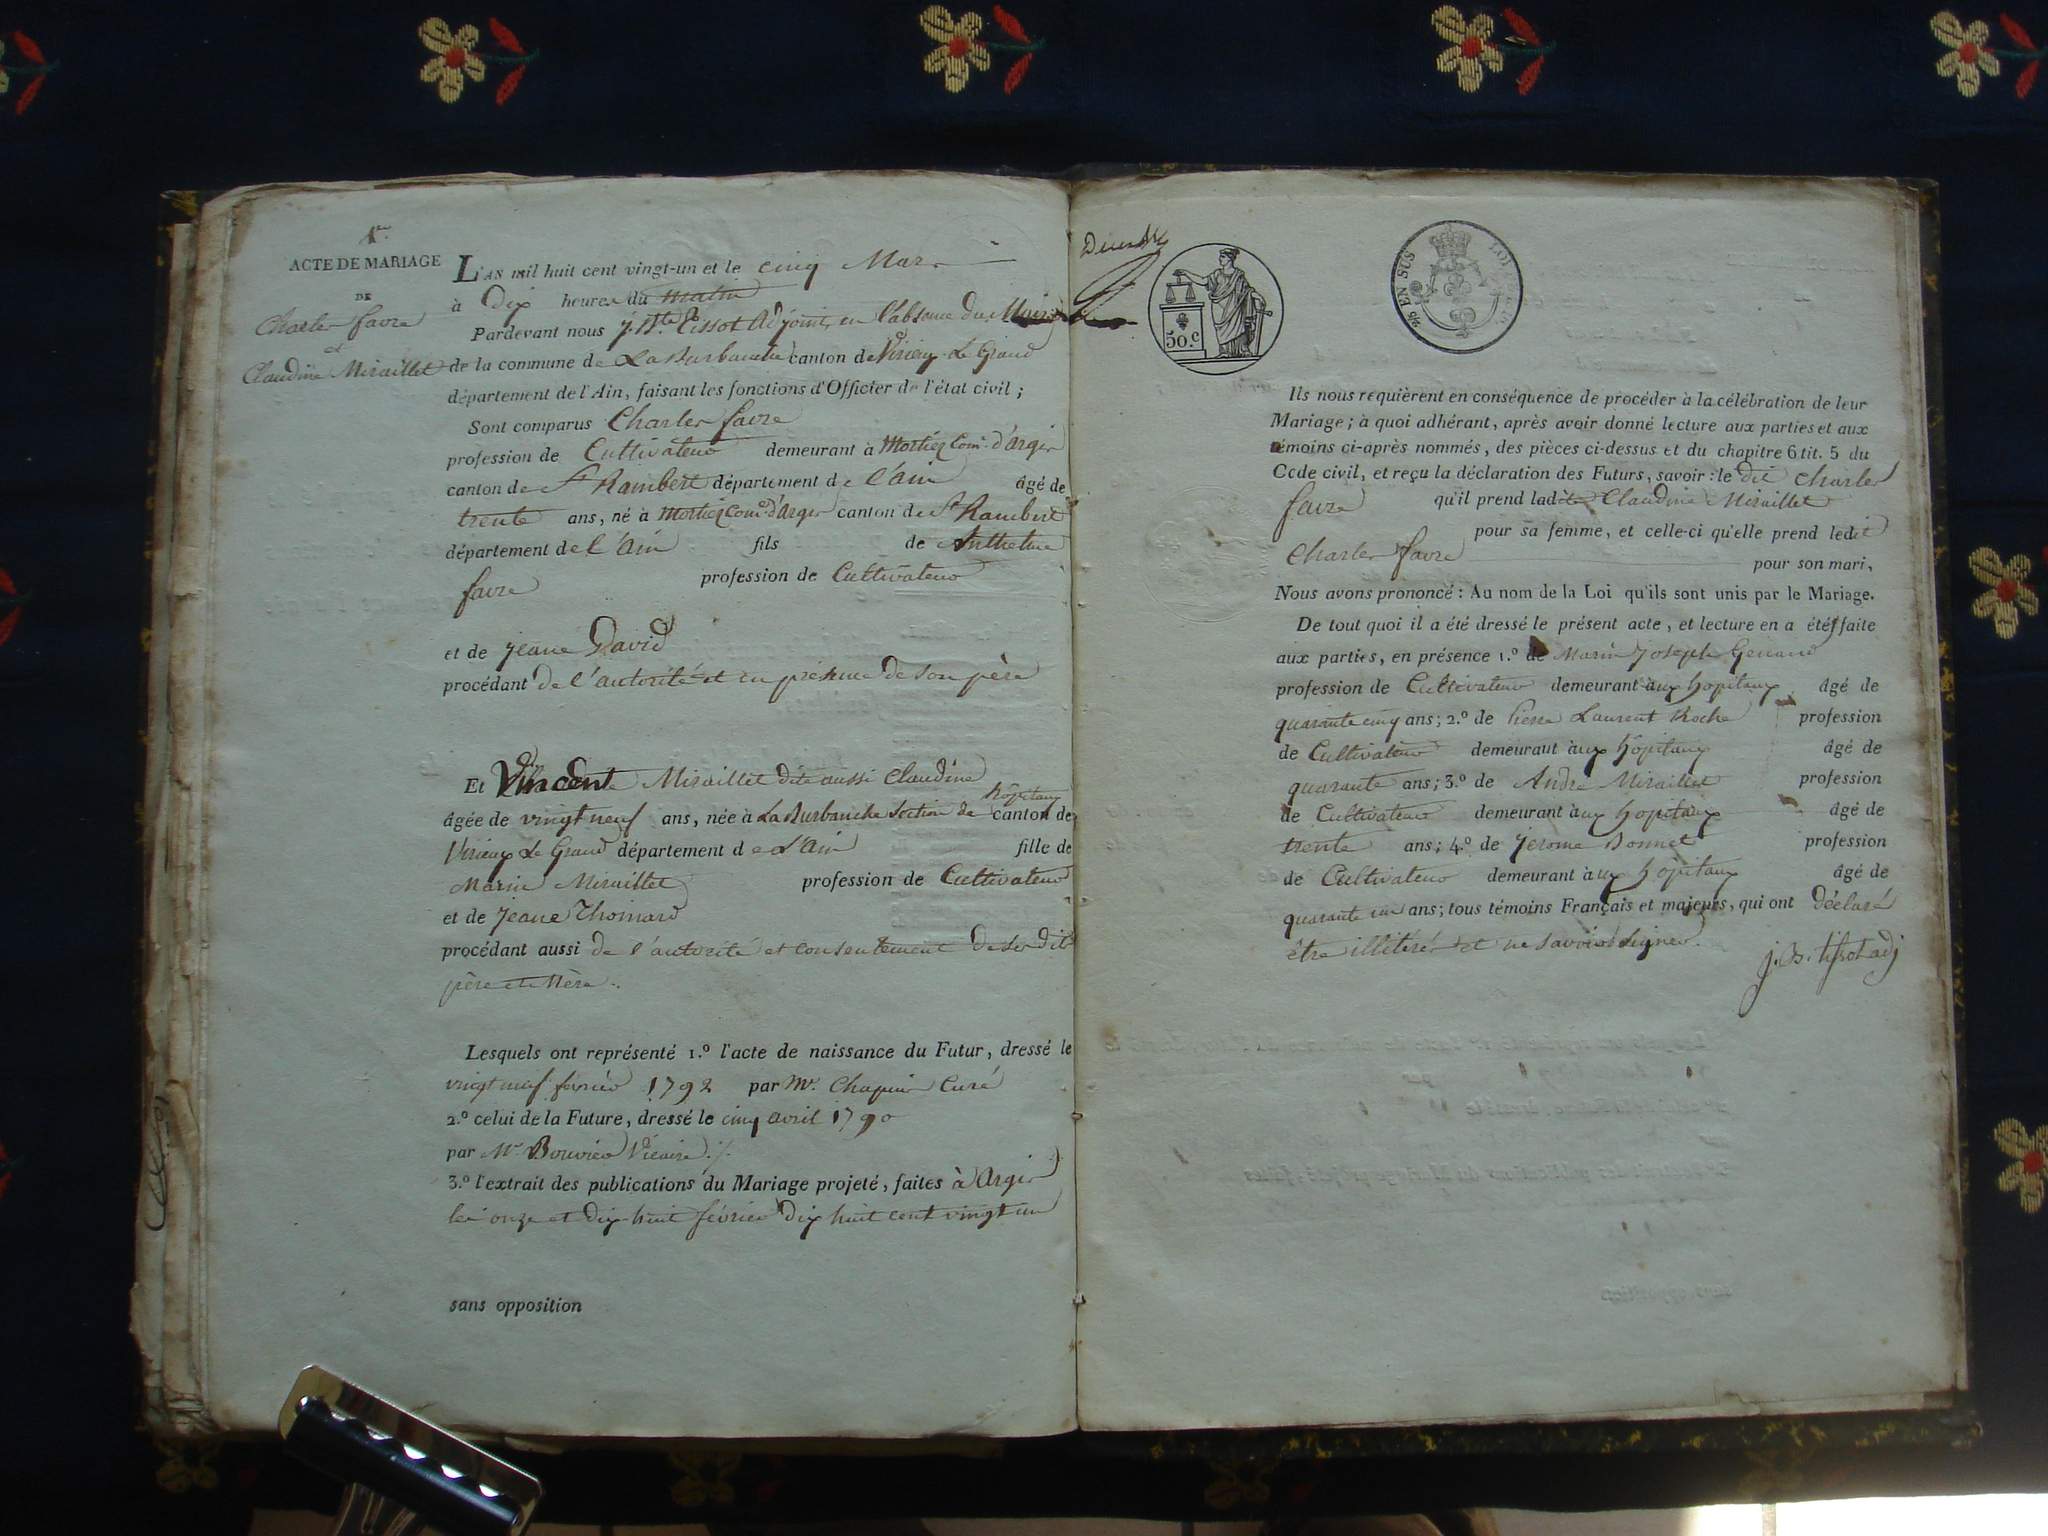 ACTE DE MARIAGE
DE
Charles favre
et
Claudine Miraillet
L'AN mil huit cent vingt-un et le cinq Mars
à Dix heures du matin
Pardevant nous J. Bte. Tissot Adjoint, en l'absence du Maire
de la commune de La Burbanche canton de Virieu Le Grand
département de l'Ain, faisant les fonctions d'Officier de l'état civil ;
Sont comparus Charles favre
profession de Cultivateur demeurant à Mortier Com.e d'Argis
canton de St Rambert département de l'ain âgé de
trente ans, né à Mortier Com.e d'Argis canton de St Rambert
département de l'ain fils de Anthelme
favre profession de Cultivateur
et de jeane David
procédant de l'autorité et en présence de son père
Et Vincente Miraillet dite aussi Claudine
hôpitaux
âgée de vingt neuf ans, née à La Burbanche Section de canton de
Virieux Le Grand département de L'Ain fille de
Marin Miraillet profession de Cultivateur
et de jeane Thoinard
procédant aussi de l'autorité et consentement de ses dits
père et Mère.
Lesquels ont représenté 1.º l'acte de naissance du Futur, dressé le
vingt neuf février 1792 par Mr. Chapuis Curé
2.º celui de la Future, dressé le cinq avril 1790
par Mr Bouvier Vicaire ./.
3.º l'extrait des publications du Mariage projeté, faites à Argis
les onze et dix-huit février dix huit cent vingt un
sans opposition
50.c
EN SUS
LOI
Ils nous requièrent en conséquence de procéder à la célébration de leur
Mariage ; à quoi adhérant, après avoir donné lecture aux parties et aux
témoins ci-après nommés, des pièces ci-dessus et du chapitre 6 tit. 5 du
Code civil, et reçu la déclaration des Futurs, savoir : le dit Charles
favre qu'il prend ladite Claudine Miraillet
pour sa femme, et celle-ci qu'elle prend ledit
Charles favre pour son mari,
Nous avons prononcé : Au nom de la Loi qu'ils sont unis par le Mariage.
De tout quoi il a été dressé le présent acte, et lecture en a été faite
aux parties, en présence 1.º de Marin Joseph Genand
profession de Cultivateur demeurant aux hopitaux âgé de
quarante cinq ans ; 2.º de Pierre Laurent Roche profession
de Cultivateur demeurant aux hôpitaux âgé de
quarante ans ; 3.º de André Miraillet profession
de Cultivateur demeurant aux hopitaux âgé de
trente ans ; 4.º de Jerome Bonnet profession
de Cultivateur demeurant aux hôpitaux âgé de
quarante un ans ; tous témoins Français et majeurs, qui ont déclaré
être illitéré et ne savoir signer.
j. B. tissot adj